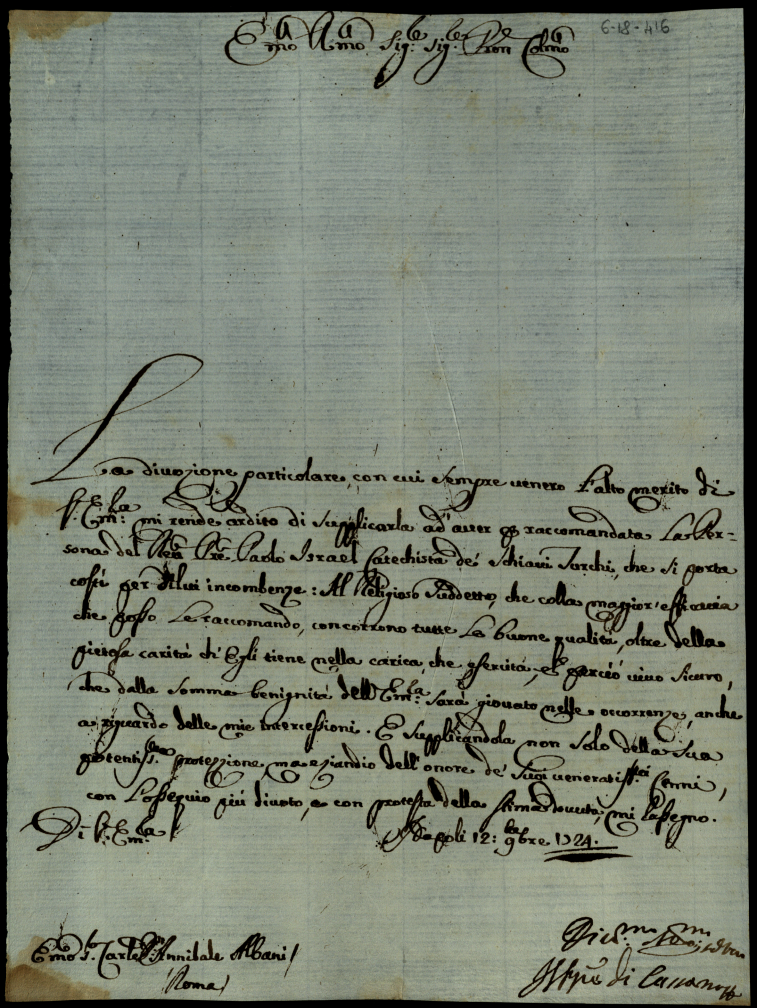 6-18-416
Emo Rmo Sig.re Sig.re Pron Colmo
La divozione particolare, con cui sempre venero l'alto merito di
V. Em.za mi rende ardito di supplicarla ad aver raccomandata la Per-
sona del Pre Paolo Israel Catechista de' Schiavi Turchi, che si porta
costì per incombenze: Al Religioso suddetto, che colla maggior' efficacia
che posso Le raccomando, concorrono tutte Le buone qualità, oltre della
pietosa carità ch' Egli tiene nella carica, che esercita, e perciò vivo sicuro,
che dalla somma benignità dell' Em.za sarà giovato nelle occorrenze, anche
a riguardo delle mie intercessioni. E supplicandola non solo della sua
potentiss.ma protezzione, ma eziandio dell' onore de' suoi veneratiss.mi Cenni,
con l'ossequio più divoto, e con protesta della stima dovuta, mi rassegno.
Di V. Em.za
Napoli 12: 9bre 1724.
Emo S. Card.l Annibale Albani
Roma
di Cassano